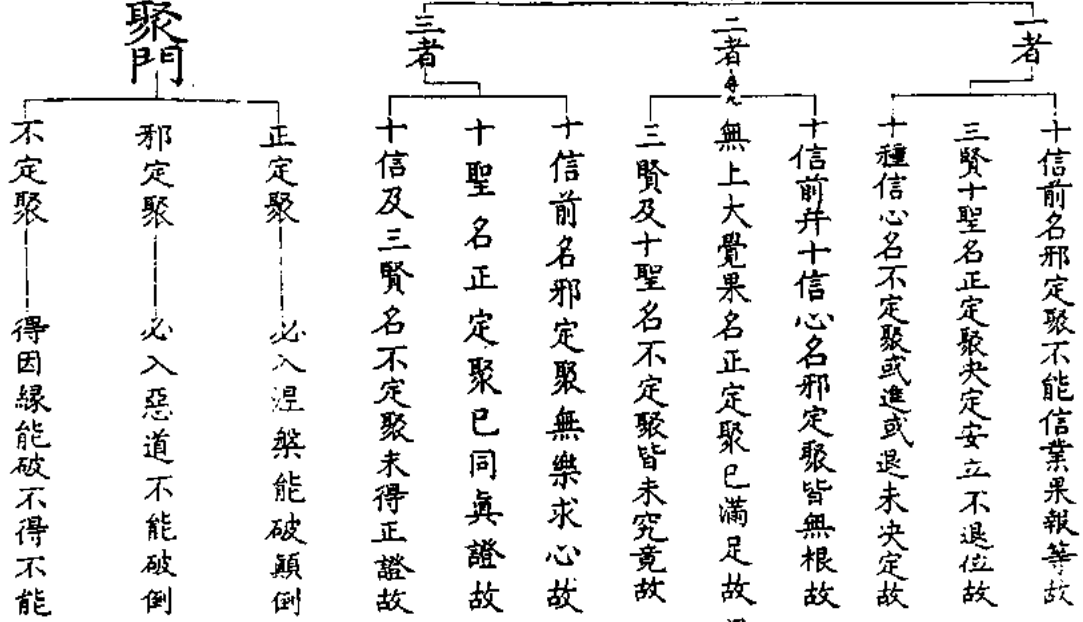 一者
十信前名邪定聚不能信業果報等故
三賢十聖名正定聚決定安立不退位故
十種信心名不定聚或進或退未決定故
二者
十信前并十信心名邪定聚皆無根故
無上大覺果名正定聚已滿足故
三賢及十聖名不定聚皆未究竟故
三者
十信前名邪定聚無樂求心故
十聖名正定聚已同眞證故
十信及三賢名不定聚未得正證故
聚門
正定聚
必入涅槃能破顛倒
邪定聚
必入惡道不能破倒
不定聚
得因緣能破不得不能